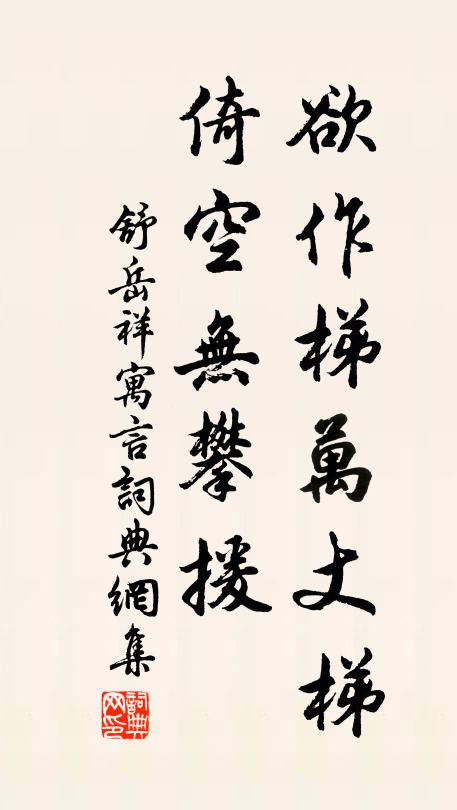 欲作梯萬丈梯
倚空無攀援
舒岳祥寓言詞典網集
詞典
网印